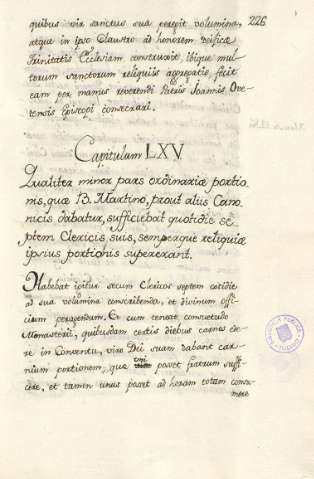 quibus vir sanctus sua peregit volumina, 226
atque in ipso Claustro ad honorem deificæ
Trinitatis Ecclesiam construxit, ibique mul-
torum sanctorum reliquiis aggregatis, fecit
eam per manus reverendi Patris Joannis Ove-
tensis Episcopi consecrari.
Capitulum LXV
Qualiter minor pars ordinariæ portio-
nis, quæ B. Martino, prout aliis Cano-
nicis dabatur, sufficiebat quotidie se-
ptem Clericis suis, semperque reliquiæ
ipsius portionis supererant.
Habebat igitur secum Clericos septem cotidie
ad sua volumina conscribenda, et divinum offi-
cium peragendum. Et cum teneat consuetudo
Monasterii, quibusdam certis diebus carnes ede-
re in Conventu, viro Dei suam dabant car-
nium portionem, quæ uni posset fratrum suffi-
cere, et tamen unus posset ad horam totam consu-
mere